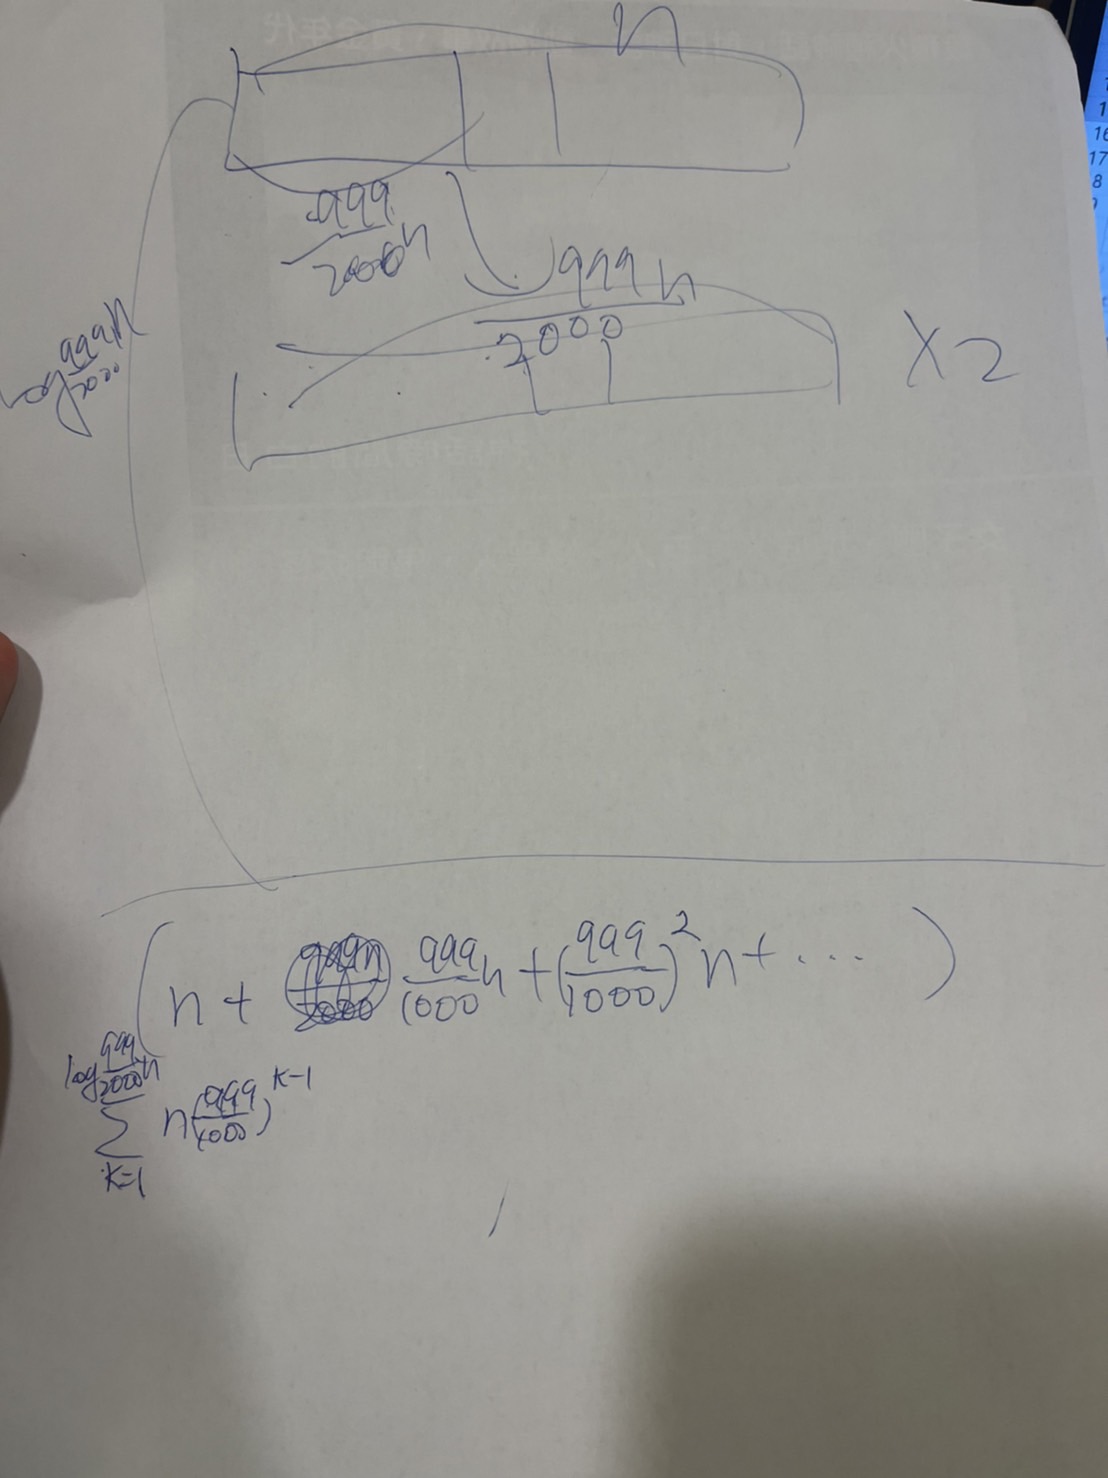 n
999/2000 n
999n/2000
log 999/2000 n
X2
(n + 999/1000 n + (999/1000)^2 n + ...)
log 999/2000 n
∑ n(999/1000)^k-1
k=1
16
17
8